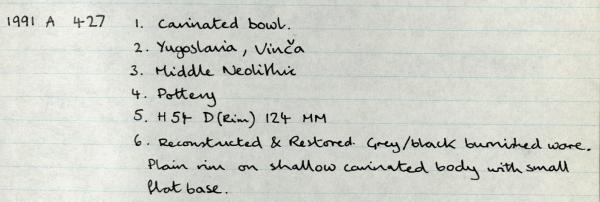 1991 A 427 1. Carinated bowl.
2. Yugoslavia, Vinča
3. Middle Neolithic
4. Pottery
5. H 54 D (Rim) 124 MM
6. Reconstructed & Restored. Grey/black burnished ware.
Plain rim on shallow carinated body with small
flat base.